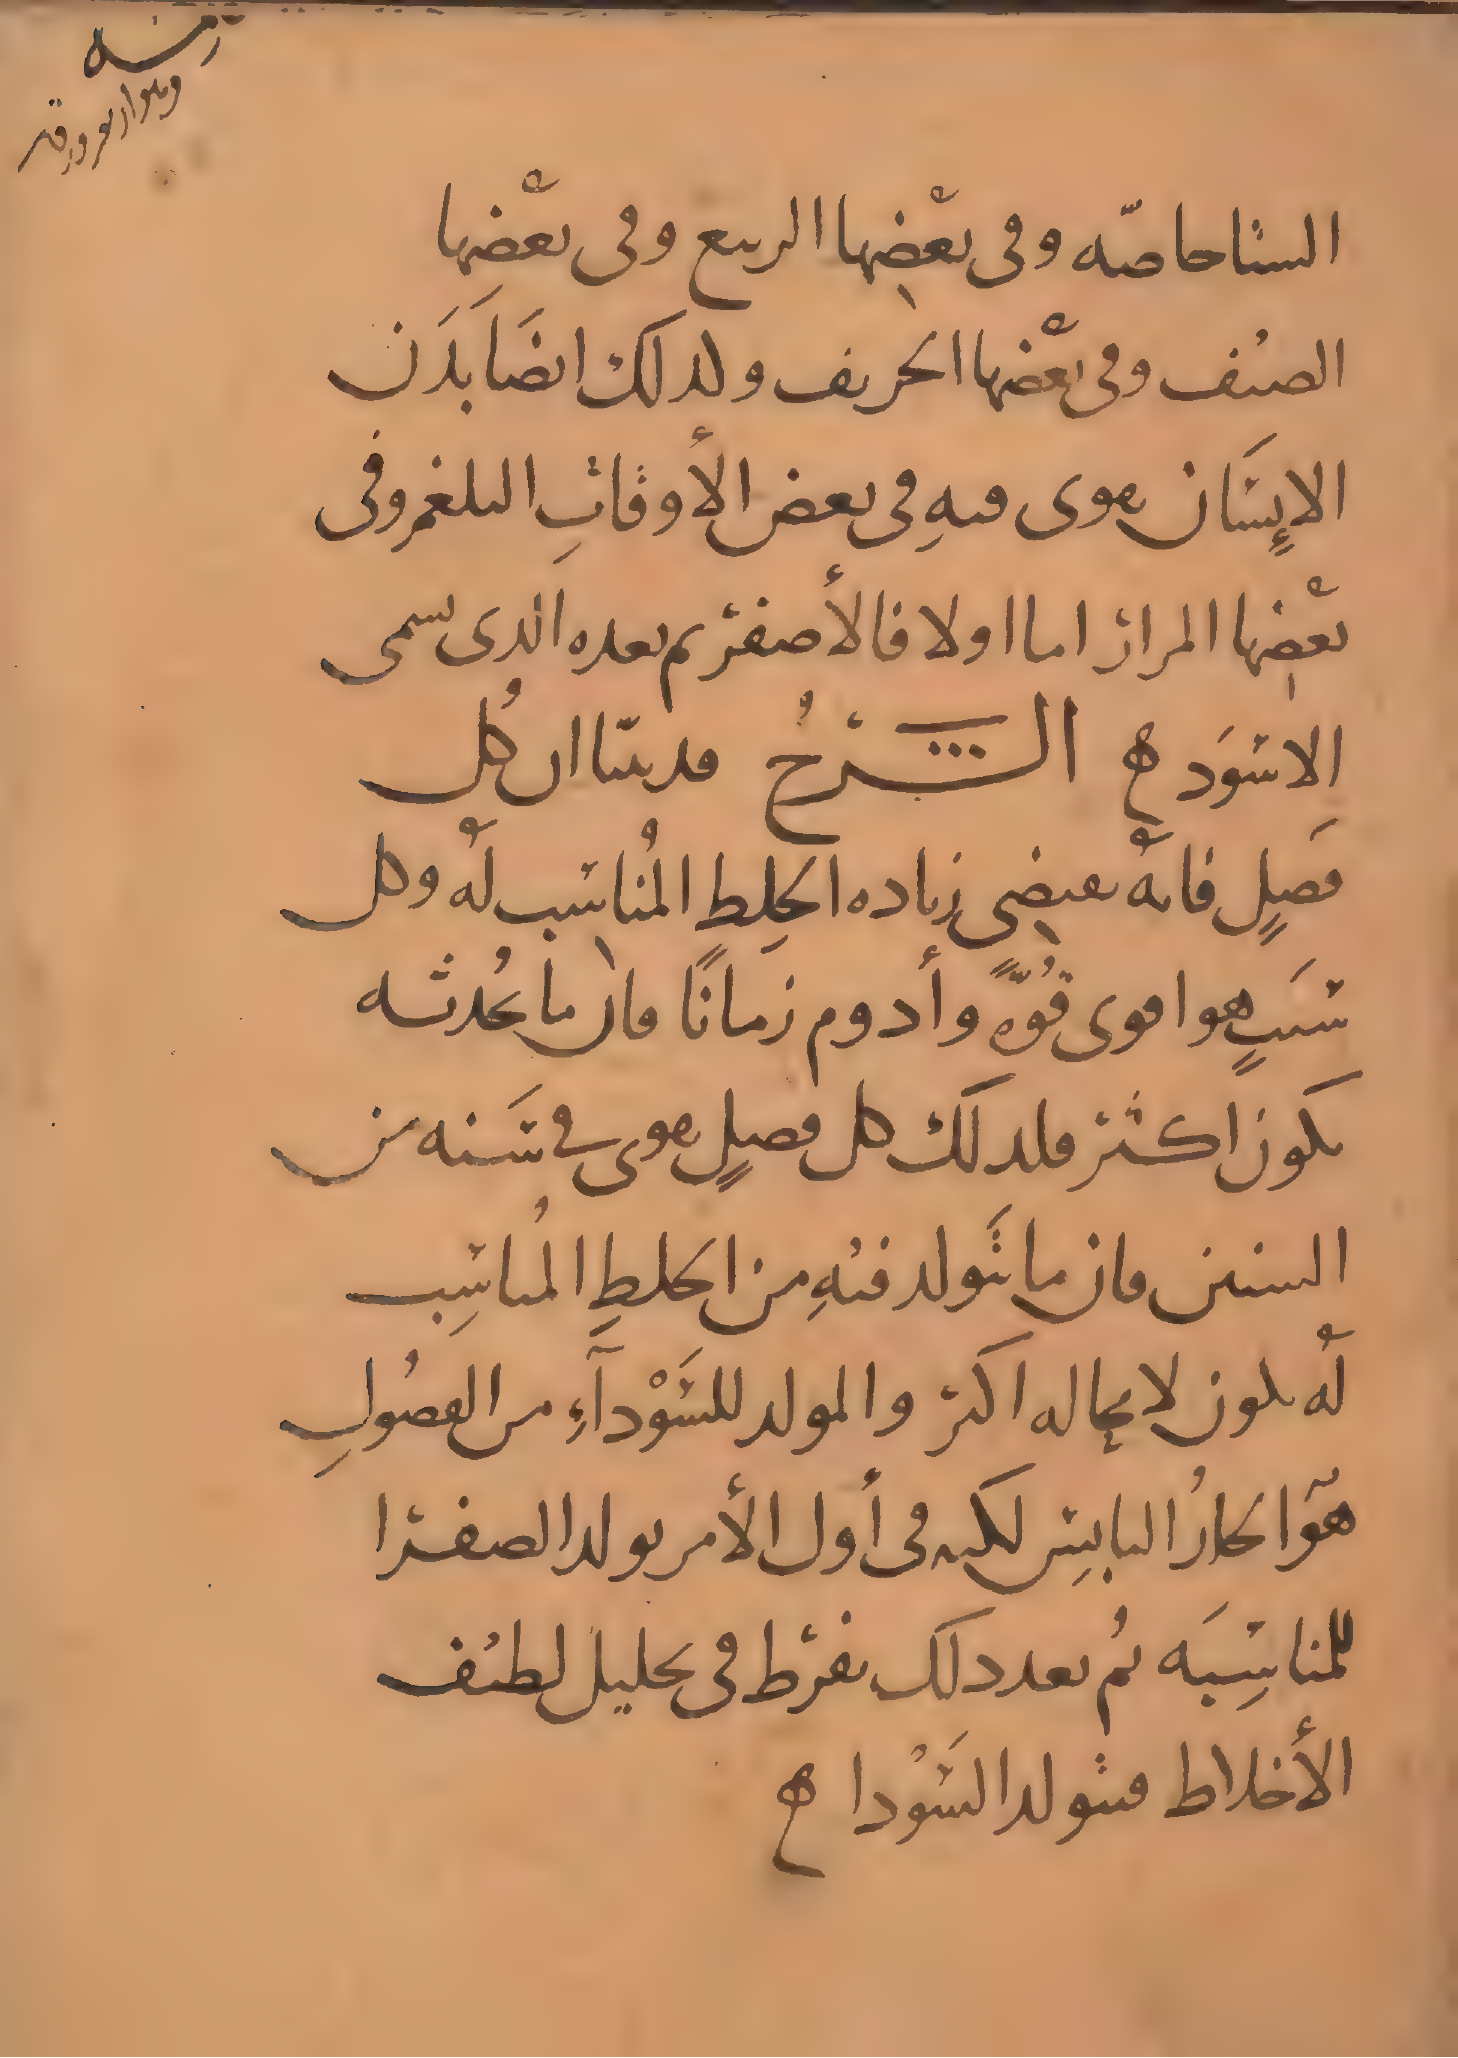 الشتا خاصّه وفى بعْضها الربيع وفى بعْضها
الصيف وفى بعْضها الخريف ولذلك ايضَا بدَن
الإنسَان يقوى فيهِ فى بعض الأوقاتِ البلغم وفى
بعْضها المرار اما اولا فالأصفر ثم بعده الذى يسمى
الاسوَد ه الشرحُ قد بينّا ان كُل
فَصلٍ فانهْ يقتضى زياده الخلِطِ المُناسب لهْ وكل
سَببٍ هو اقوى قوُّةً وأدوم زمانًا فان ما يُحدثه
يكون اكثر فلذلَك كل فصلٍ يقوى فى سَنه من
السنين فان ما يَتولد فيهِ من الخلطِ المُناسِب
لهْ يكون لا محاله اكثر والمولد للسَّوْدآءِ من الفصُولِ
هوَ الحارُ اليابِس لكنه فى أول الأمر يولد الصفرا
للمناسِبَه ثُم بعد ذلك يفرط فى تحليل لطيف
الأخلاط فيتولد السَّوْدا ه